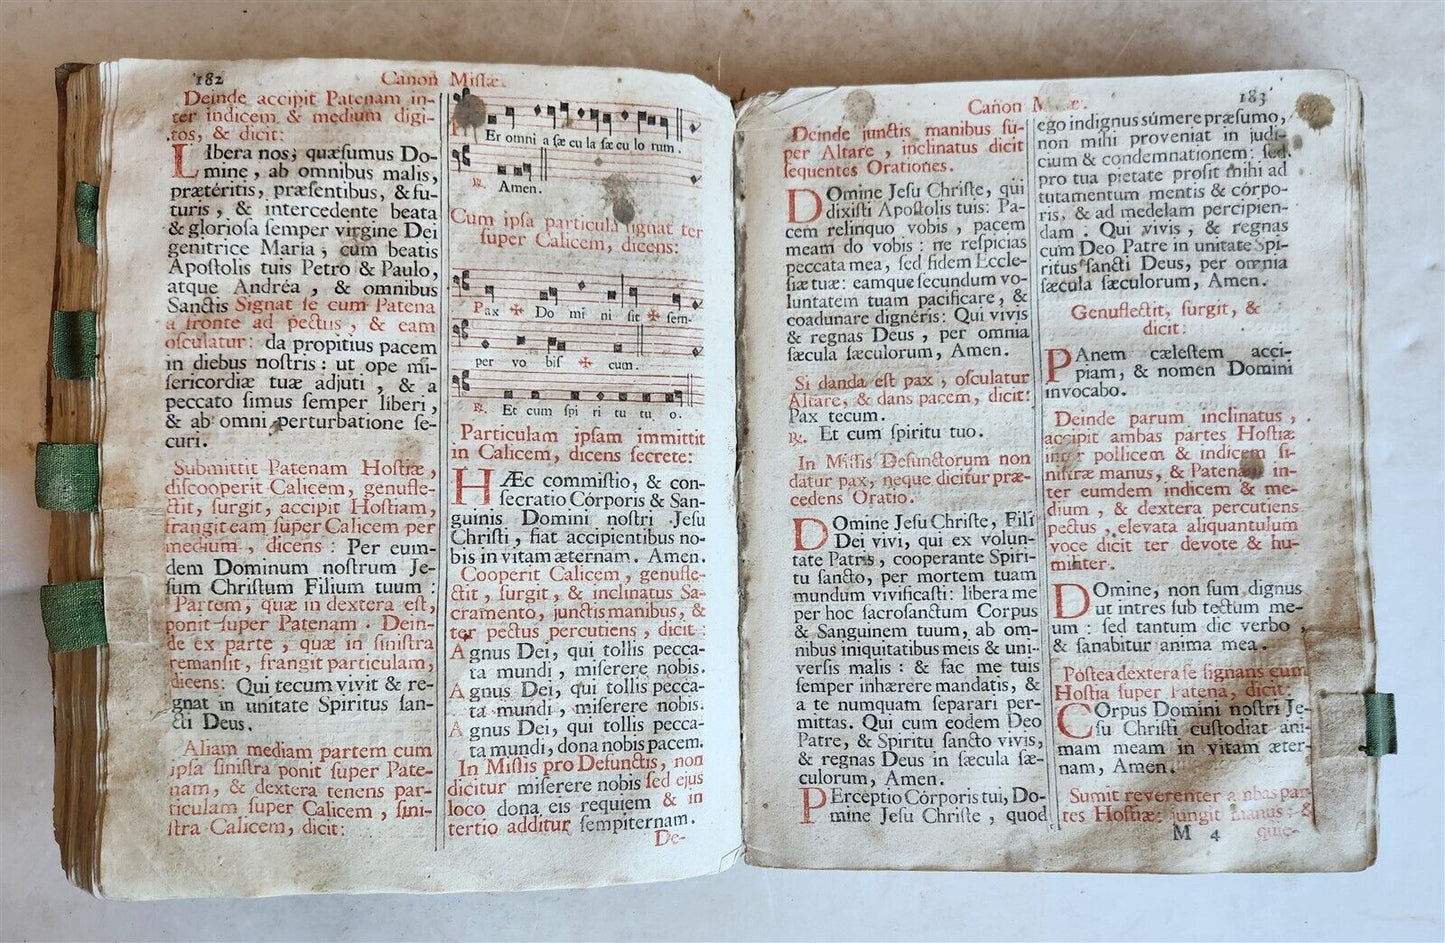 182
Canon Missæ.
Deinde accipit Patenam in-
ter indicem & medium digi-
tos, & dicit:
LIbera nos, quæsumus Do-
mine, ab omnibus malis,
prætéritis, præsentibus, & fu-
turis, & intercedente beata
& gloriosa semper virgine Dei
genitrice Maria, cum beatis
Apostolis tuis Petro & Paulo,
atque Andréa, & omnibus
Sanctis Signat se cum Patena
a fronte ad pectus, & eam
osculatur: da propitius pacem
in diebus nostris: ut ope mi-
sericordiæ tuæ adjuti, & a
peccato simus semper liberi,
& ab omni perturbatione se-
curi.
Submittit Patenam Hostiæ,
discooperit Calicem, genufle-
ctit, surgit, accipit Hostiam,
frangit eam super Calicem per
medium, dicens: Per eum-
dem Dominum nostrum Je-
sum Christum Filium tuum:
Partem, quæ in dextera est,
ponit super Patenam. Dein-
de ex parte, quæ in sinistra
remansit, frangit particulam,
dicens: Qui tecum vivit & re-
gnat in unitate Spiritus san-
cti Deus.
Aliam mediam partem cum
ipsa sinistra ponit super Pate-
nam, & dextera tenens par-
ticulam super Calicem, sini-
stra Calicem, dicit:
Er omni a sæ cu la sæ cu lo rum.
℟. Amen.
Cum ipsa particula signat ter
super Calicem, dicens:
Pax ✠ Do mi ni sit ✠ sem-
per vo bis ✠ cum.
℟. Et cum spi ri tu tu o.
Particulam ipsam immittit
in Calicem, dicens secrete:
HÆc commistio, & con-
secratio Córporis & San-
guinis Domini nostri Jesu
Christi, fiat accipientibus no-
bis in vitam æternam. Amen.
Cooperit Calicem, genufle-
ctit, surgit, & inclinatus Sa-
cramento, junctis manibus, &
ter pectus percutiens, dicit:
Agnus Dei, qui tollis pecca-
ta mundi, miserere nobis.
Agnus Dei, qui tollis pecca-
ta mundi, miserere nobis.
Agnus Dei, qui tollis pecca-
ta mundi, dona nobis pacem.
In Missis pro Defunctis, non
dicitur miserere nobis sed ejus
loco dona eis requiem & in
tertio additur sempiternam.
De-
Canon
183
Deinde junctis manibus su-
per Altare, inclinatus dicit
sequentes Orationes.
DOmine Jesu Christe, qui
dixisti Apostolis tuis: Pa-
cem relinquo vobis, pacem
meam do vobis: ne respicias
peccata mea, sed fidem Eccle-
siæ tuæ: eamque secundum vo-
luntatem tuam pacificare, &
coadunare dignéris: Qui vivis
& regnas Deus, per omnia
sæcula sæculorum, Amen.
Si danda est pax, osculatur
Altare, & dans pacem, dicit:
Pax tecum.
℟. Et cum spiritu tuo.
In Missis Defunctorum non
datur pax, neque dicitur præ-
cedens Oratio.
DOmine Jesu Christe, Fili
Dei vivi, qui ex volun-
tate Patris, cooperante Spiri-
tu sancto, per mortem tuam
mundum vivificasti: libera me
per hoc sacrosanctum Corpus
& Sanguinem tuum, ab om-
nibus iniquitatibus meis & uni-
versis malis: & fac me tuis
semper inhærere mandatis, &
a te numquam separari per-
mittas. Qui cum eodem Deo
Patre, & Spiritu sancto vivis,
& regnas Deus in sæcula sæ-
culorum, Amen.
PErceptio Córporis tui, Do-
mine Jesu Christe, quod
ego indignus súmere præsumo,
non mihi proveniat in judi-
cium & condemnationem: sed
pro tua pietate prosit mihi ad
tutamentum mentis & córpo-
ris, & ad medelam percipien-
dam. Qui vivis, & regnas
cum Deo Patre in unitate Spi-
ritus sancti Deus, per omnia
sæcula sæculorum, Amen.
Genuflectit, surgit, &
dicit:
PAnem cælestem acci-
piam, & nomen Domini
invocabo.
Deinde parum inclinatus,
accipit ambas partes Hostiæ
inter pollicem & indicem si-
nistræ manus, & Patenam in-
ter eumdem indicem & me-
dium, & dextera percutiens
pectus, elevata aliquantulum
voce dicit ter devote & hu-
militer.
DOmine, non sum dignus
ut intres sub tectum me-
um: sed tantum dic verbo,
& sanabitur anima mea.
Postea dextera se signans cum
Hostia super Patena, dicit:
COrpus Domini nostri Je-
su Christi custodiat ani-
mam meam in vitam æter-
nam, Amen.
Sumit reverenter ambas par-
tes Hostiæ: jungit manus: &
M 4
quie-